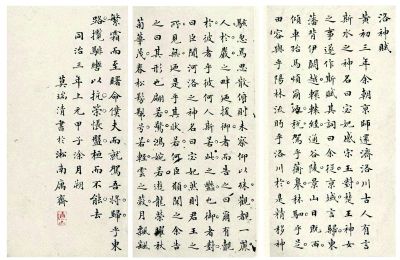 洛神賦
黃初三年余朝京師還濟洛川古人有言
斯水之神名曰宓妃感宋玉對楚王神女
之事遂作斯賦其詞曰余從京域言歸東
藩背伊闕越轘轅經通谷陵景山日既西
傾車殆馬煩爾迺稅駕乎蘅皋秣駟乎芝
田容與乎陽林流眄乎洛川於是精移神
駭忽焉思散俯則未察仰以殊觀覩一麗
人於巖之畔迺援御者而告之曰爾有覿
於彼者乎彼何人斯若此之豔也御者對
曰臣聞河洛之神名曰宓妃則君王之
所見無迺是乎其狀若何臣願聞之余告
之曰其形也翩若驚鴻婉若遊龍榮曜秋
菊華茂春松髣髴兮若輕雲之蔽月飄颻
繁霜而至曙命僕夫而就駕吾將歸乎東
路攬騑轡以抗策悵盤桓而不能去
同治三年上元甲子涂月朔
莫瑞清書於淞南齋